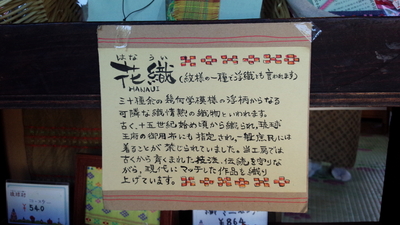 はなうい
花織
HANAUI
(紋様の一種で浮織とも言われます)
三十種余の幾何学模様の浮柄からなる
可憐な織情熱の織物といわれます。
古く、十五世紀始め頃から織られ、琉球
王府の御用布にも指定され、一般庶民には
着ることが禁じられていました。当工房では
古くから育くまれた技法、伝統を守りな
がら、現代にマッチした作品を織り
上げています。
¥540
¥864